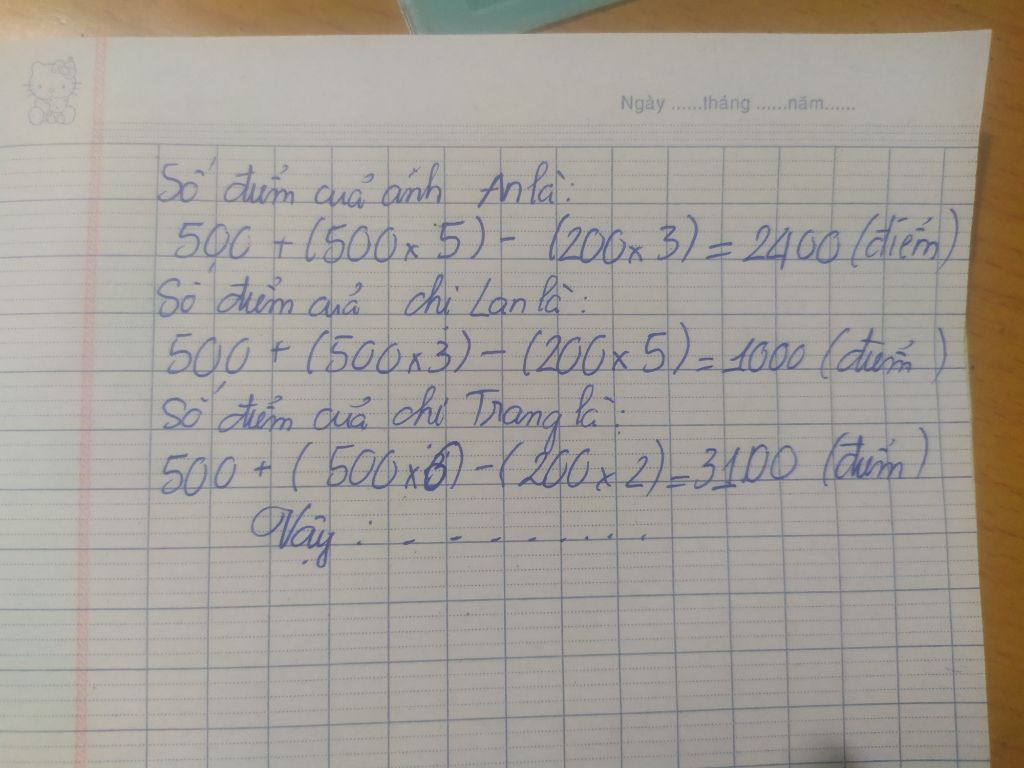 Ngày ......tháng ......năm......
Số điểm của anh An là:
500 + (500 x 5) - (200 x 3) = 2400 (điểm)
Số điểm của chị Lan là:
500 + (500 x 3) - (200 x 5) = 1000 (điểm)
Số điểm của chị Trang là:
500 + (500 x 6) - (200 x 2) = 3100 (điểm)
Vậy : - - - - - . . .